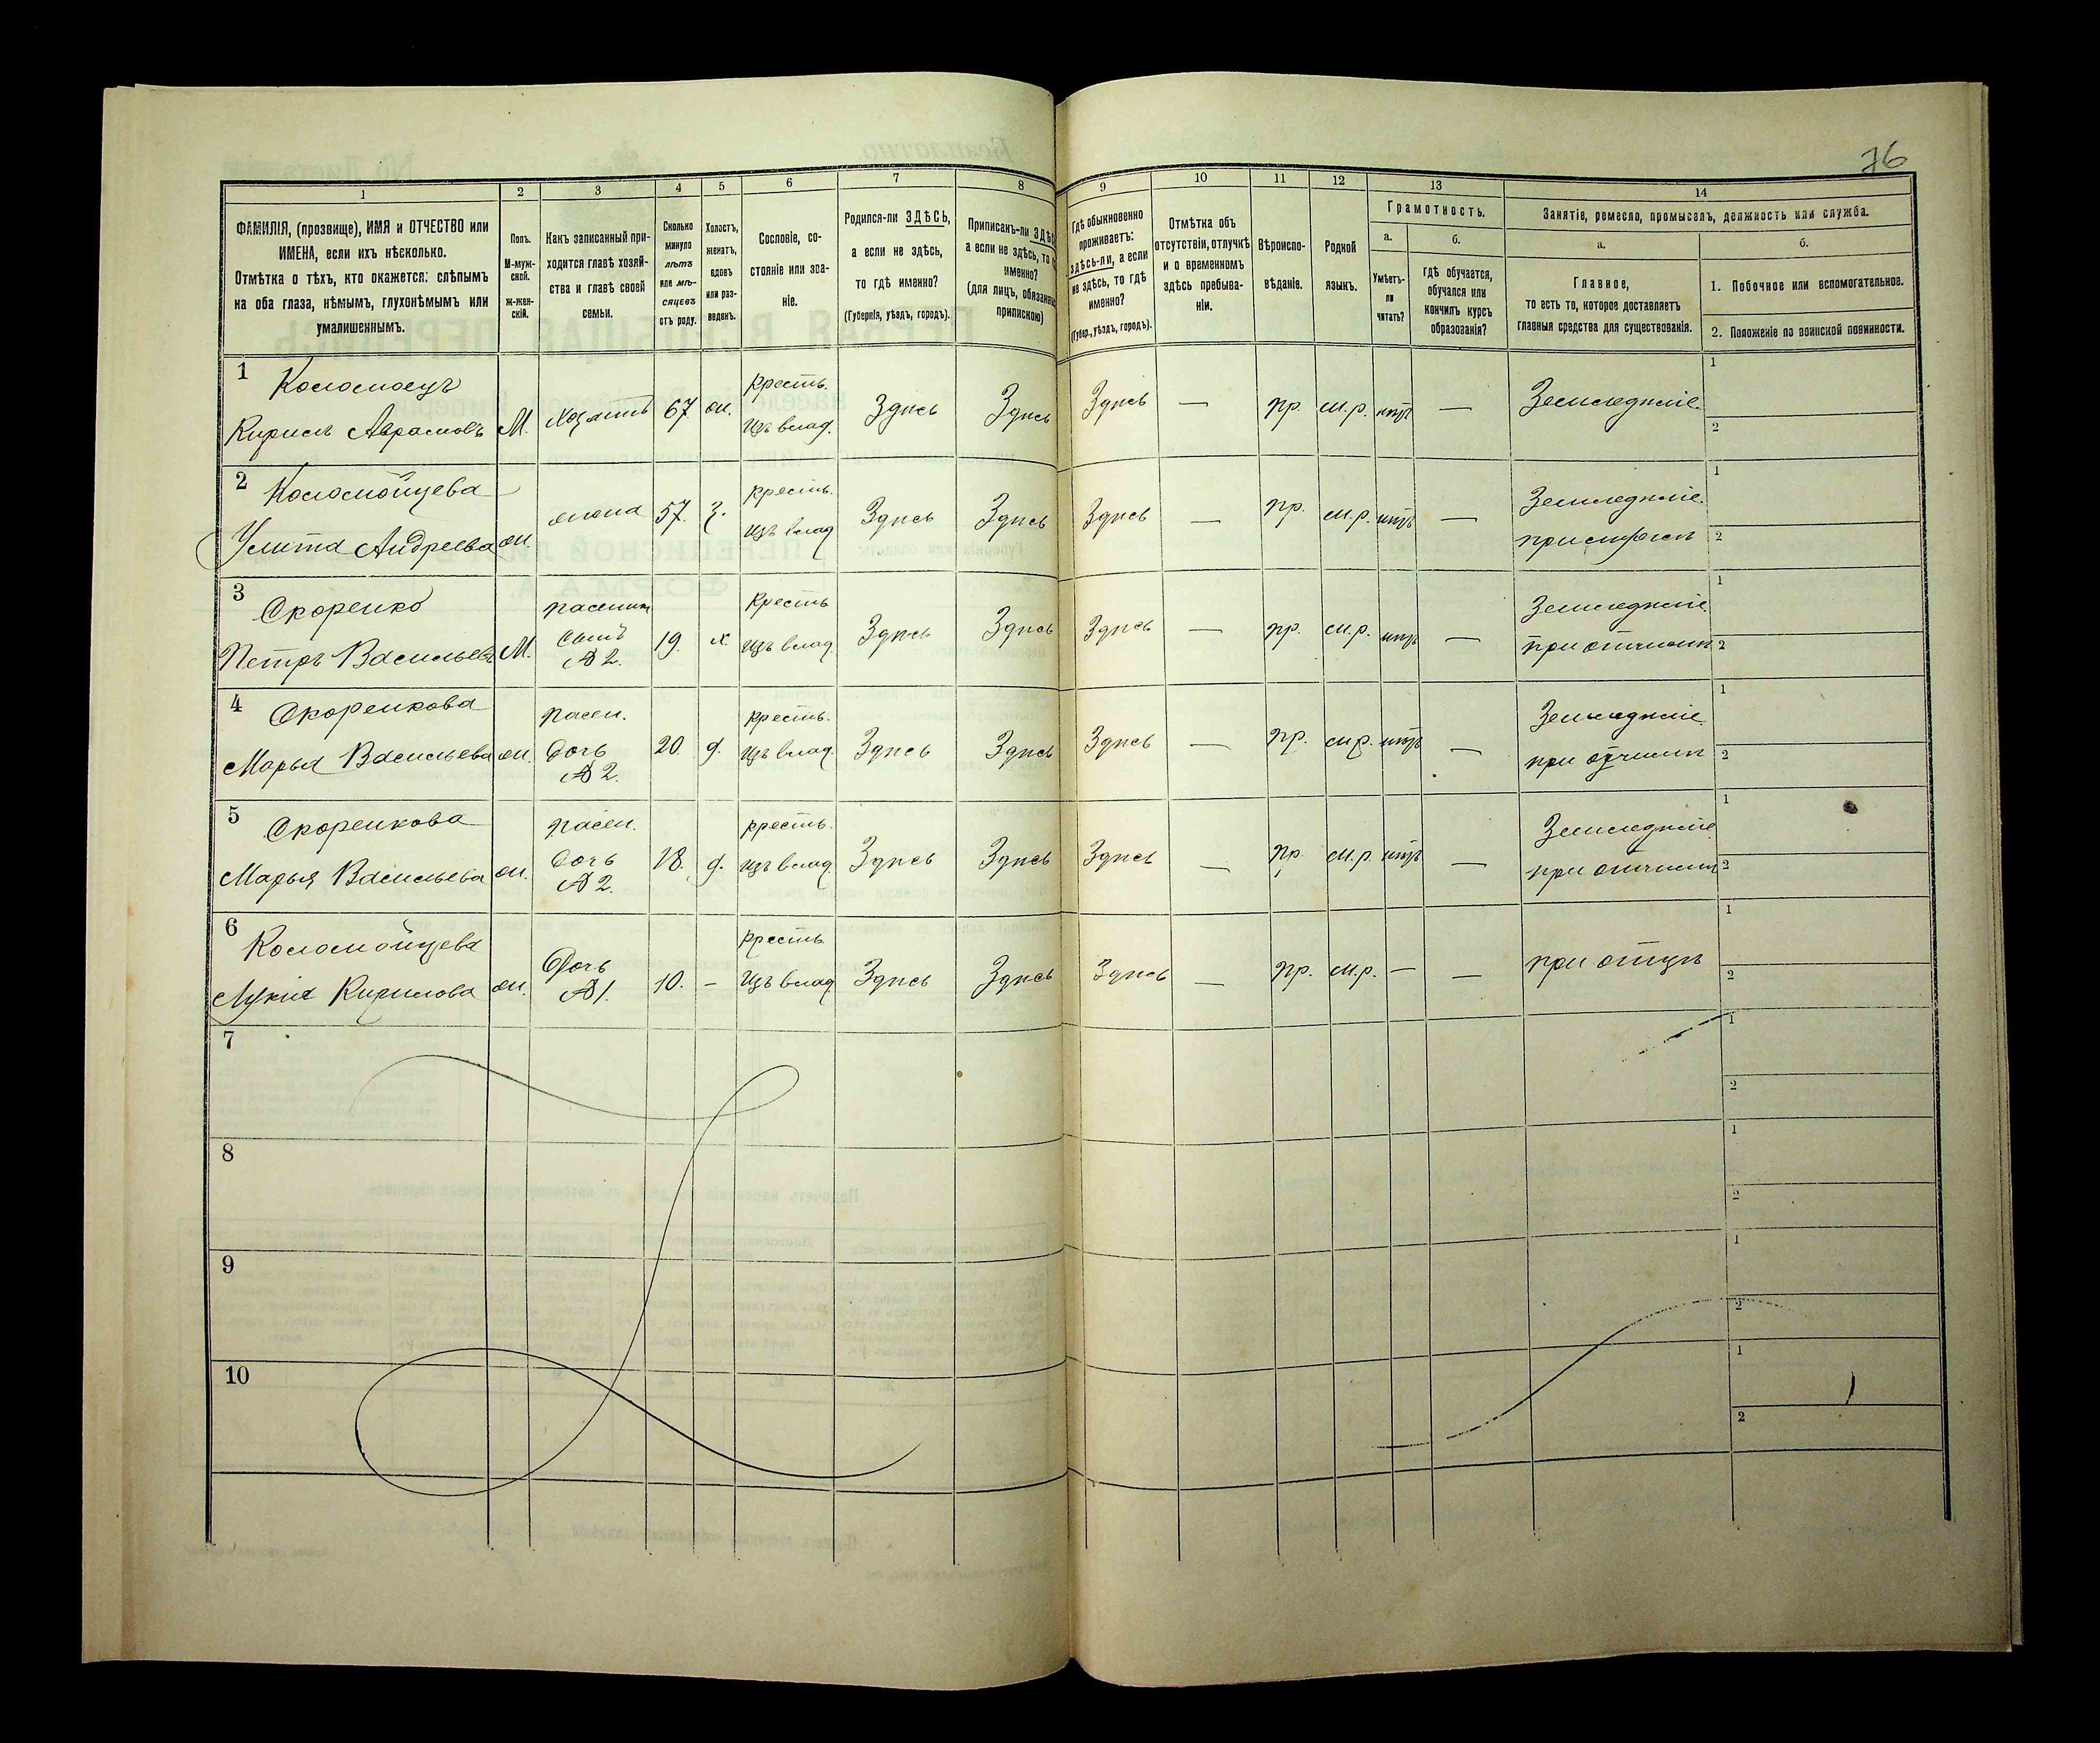 76
1
2
3
4
5
6
7
8
9
10
11
12
13
14
ФАМИЛІЯ, (прозвище), ИМЯ и ОТЧЕСТВО или
ИМЕНА, если ихъ нѣсколько.
Отмѣтка о тѣхъ, кто окажется: слѣпымъ
на оба глаза, нѣмымъ, глухонѣмымъ или
умалишеннымъ.
Полъ.
М-муж-
ской.
Ж-жен-
скій.
Какъ записанный при-
ходится главѣ хозяй-
ства и главѣ своей
семьи.
Сколько
минуло
лѣтъ
или мѣ-
сяцевъ
отъ роду.
Холостъ,
женатъ,
вдовъ
или раз-
веденъ.
Сословіе, со-
стояніе или зва-
ніе.
Родился-ли ЗДѢСЬ,
а если не здѣсь,
то гдѣ именно?
(Губернія, уѣздъ, городъ).
Приписанъ-ли
а если не здѣсь, то
именно?
(для лицъ,
припискою)
Гдѣ обыкновенно
проживаетъ:
здѣсь-ли, а если
не здѣсь, то гдѣ
именно?
(Губер., уѣздъ, городъ).
Отмѣтка объ
отсутствіи, отлучкѣ
и о временномъ
здѣсь пребыва-
ніи.
Вѣроиспо-
вѣданіе.
Родной
языкъ.
Грамотность.
а.
Умѣетъ-
ли
читать?
б.
Гдѣ обучается,
обучался или
кончилъ курсъ
образованія?
Занятіе, ремесло, промыселъ, должность или служба.
а.
Главное,
то есть то, которое доставляетъ
главныя средства для существованія.
б.
1. Побочное или вспомогательное.
2. Положеніе по воинской повинности.
1
Коломоецъ
Кирилъ Аврамовъ
М.
Хозяинъ
67.
ж.
Кресть.
изъ влад.
Здѣсь
Здѣсь
Здѣсь
—
пр.
м.р.
нѣтъ
—
Земледѣліе.
1
2
2
Коломойцева
Улита Андреева
ж
жена
57.
з.
кресть.
изъ влад
Здѣсь
Здѣсь
Здѣсь
—
пр.
м.р.
нѣтъ
—
Земледѣліе.
при мужѣ
1
2
3
Скоренко
Петръ Васильевъ
М.
пасынк
сынъ
№ 2.
19.
х.
Кресть
изъ влад.
Здѣсь
Здѣсь
Здѣсь
—
пр.
м.р.
нѣтъ
—
Земледѣліе.
при отчимѣ
1
2
4
Скоренкова
Марья Васильева
ж.
пасен.
дочь
№ 2.
20.
д.
кресть.
изъ влад.
Здѣсь
Здѣсь
Здѣсь
—
пр.
м.р.
нѣтъ
—
Земледѣліе
при отчимѣ
1
2
5
Скоренкова
Марья Васильева
ж.
пасен.
дочь
№ 2.
18.
д.
кресть.
изъ влад.
Здѣсь
Здѣсь
Здѣсь
—
пр.
м.р.
нѣтъ
—
Земледѣліе
при отчимѣ
1
2
6
Коломойцева
Лукія Кирилова
ж.
Дочь
№ 1.
10.
–
кресть
изъ влад
Здѣсь
Здѣсь
Здѣсь
—
пр.
м.р.
—
—
при отцѣ
1
2
7
1
2
8
1
2
9
1
2
10
1
2